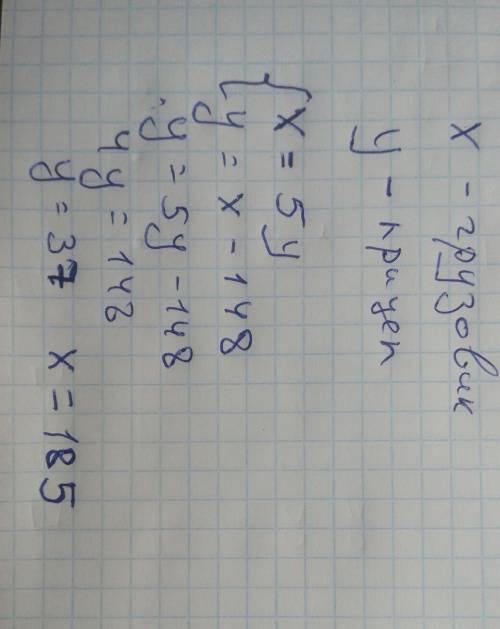 x - грузовик
y - прицеп
{ x = 5y
y = x - 148
y = 5y - 148
4y = 148
y = 37 x = 185